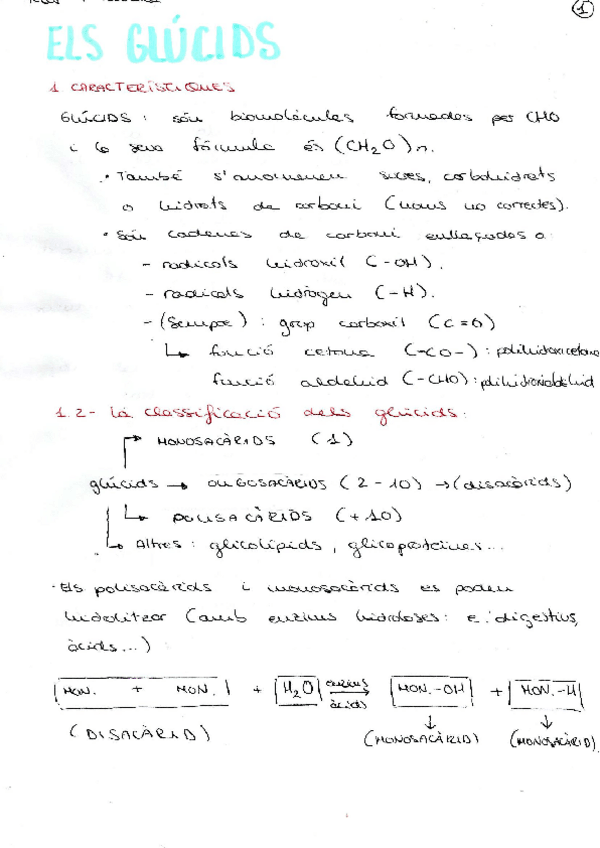 1
ELS GLÚCIDS
1 CARACTERÍSTIQUES
GLÚCIDS: són biomolècules formades per CHO
i la seva fórmula és (CH₂O)n.
• També s'anomenen sucres, carbohidrats
o hidrats de carboni (noms no correctes).
• Són cadenes de carboni enllaçades a:
- radicals hidroxil (-OH).
- radicals hidrogen (-H).
- (Sempre): grup carbonil (C=O)
↳ funció cetona (-CO-): polihidroxicetona
funció aldehid (-CHO): polihidroxialdehid
1.2- La classificació dels glúcids:
→ MONOSACÀRIDS (1)
glúcids → OLIGOSACÀRIDS (2-10) → (disacàrids)
↳ POLISACÀRIDS (+10)
↳ Altres: glicolípids, glicoproteïnes...
· Els polisacàrids i monosacàrids es poden
hidrolitzar (amb enzims hidrolases: e. digestius,
àcids...)
MON. + MON. + H₂O enzims → àcids MON.-OH + MON.-H
(DISACÀRID) ↓ (MONOSACÀRID) ↓ (MONOSACÀRID)